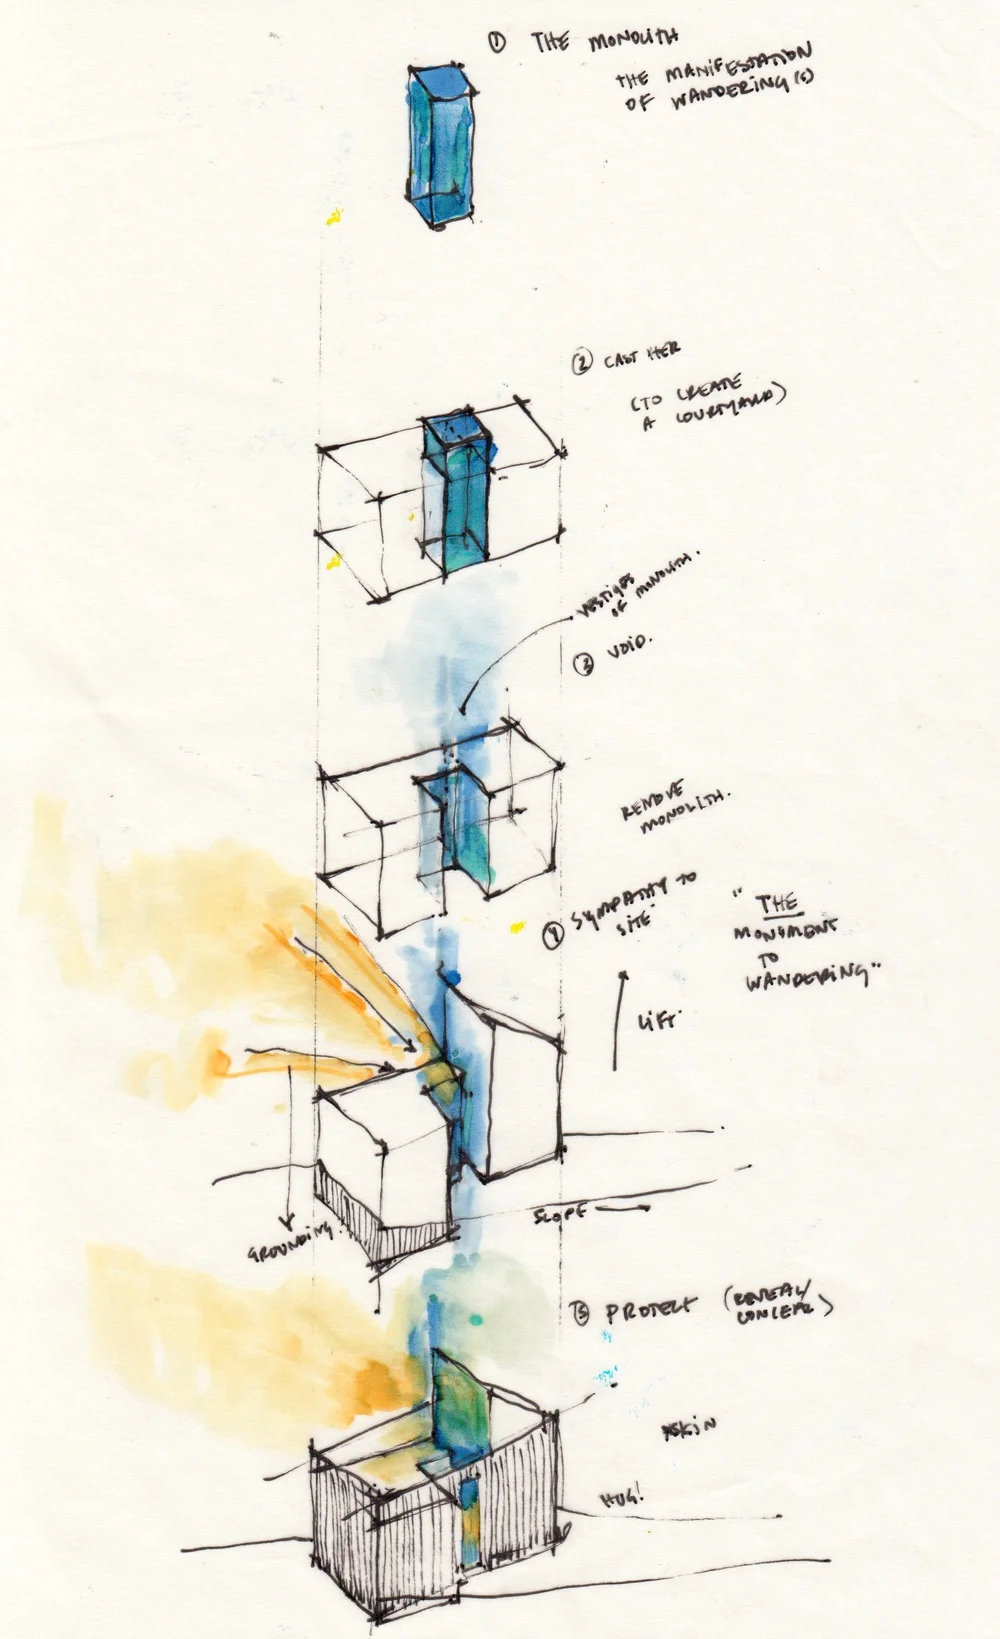 ① THE MONOLITH
THE MANIFESTATION
OF WANDERING(S)
② CAST HER
(TO CREATE
A COURTYARD)
VESTIGES
OF MONOLITH.
③ VOID.
REMOVE
MONOLITH.
④ SYMPATHY TO
SITE
"THE
MONUMENT
TO
WANDERING"
LIFT
SLOPE
GROUNDING
⑤ PROTECT (REVEAL/
CONCEAL)
SKIN
HUG!